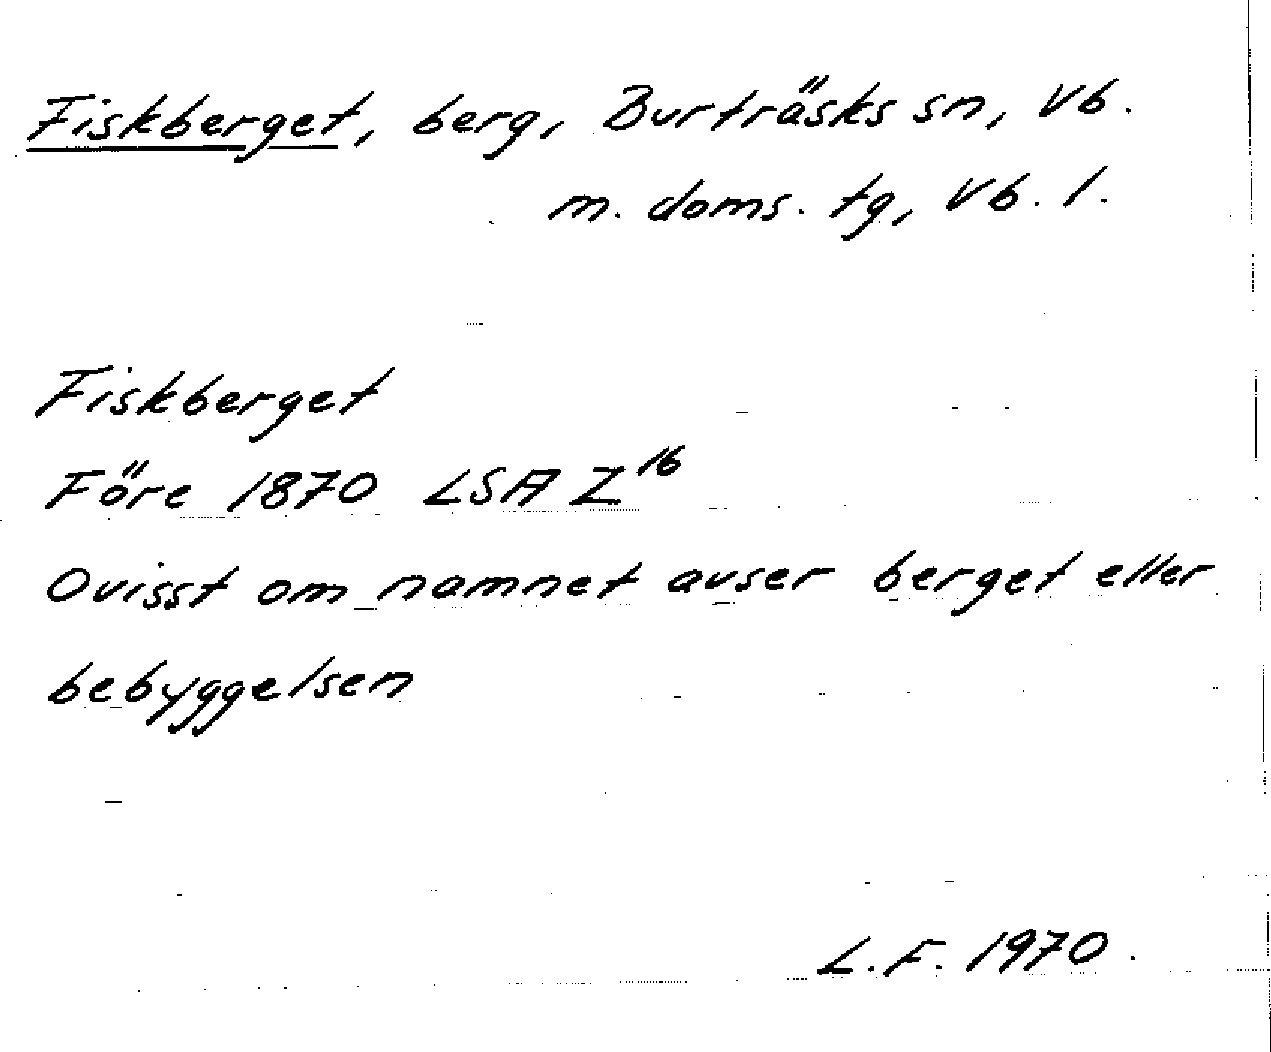 Fiskberget, berg, Burträsks sn, Vb.
m. doms. tg, Vb. l.
Fiskberget
Före 1870 LSA Z16
Ovisst om namnet avser berget eller
bebyggelsen
L.F. 1970.